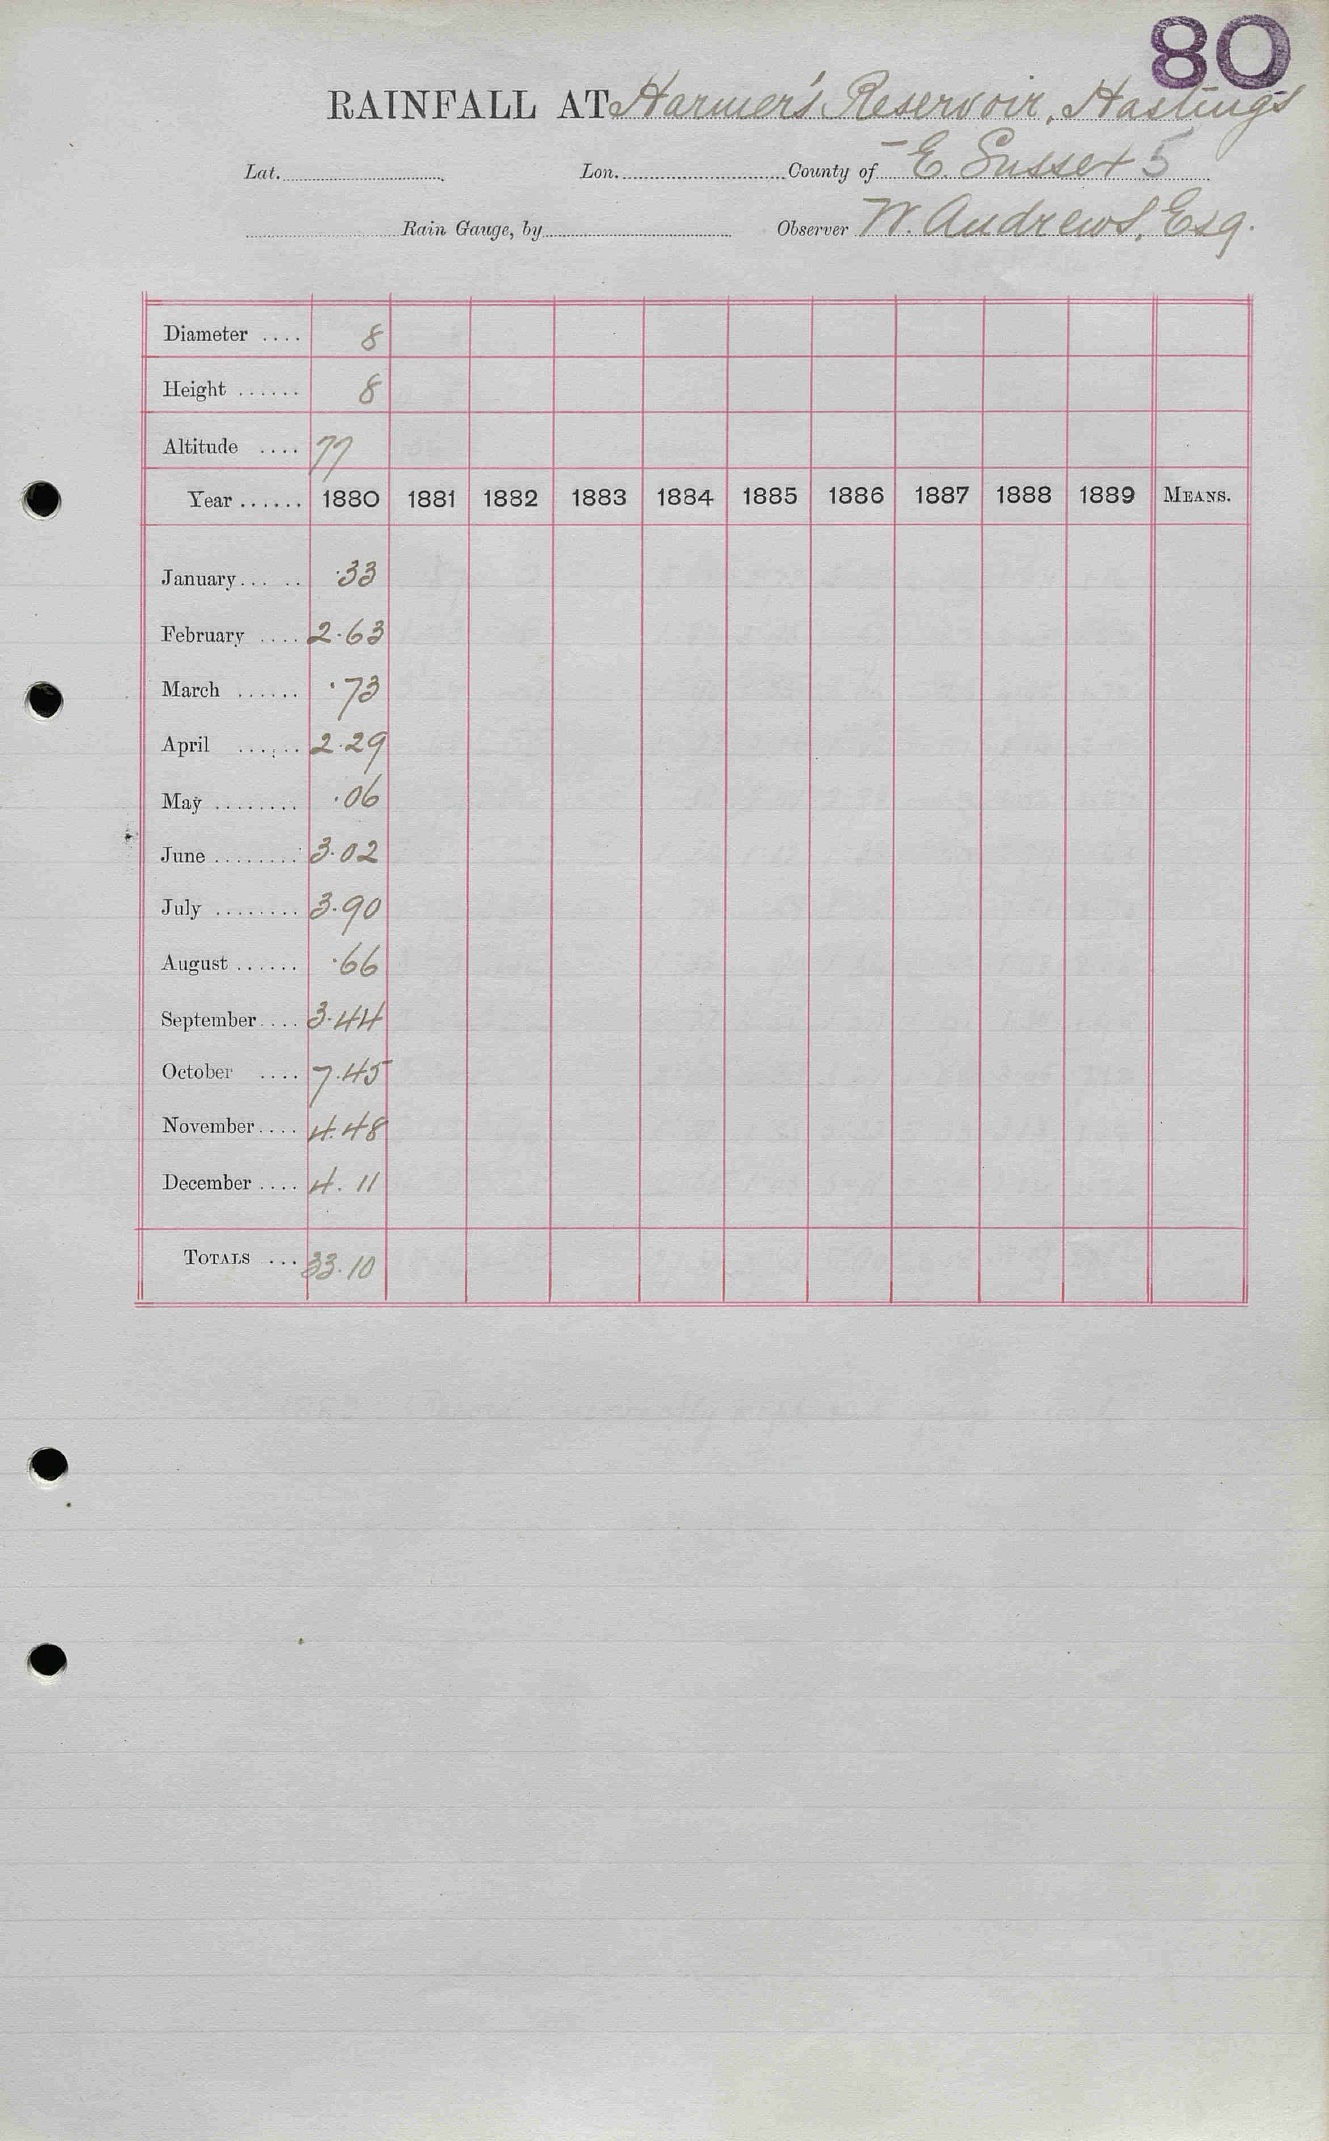 80
RAINFALL AT Harmer's Reservoir, Hastings
Lat. Lon. County of E. Sussex 5
Rain Gauge, by Observer W. Andrews, Esq.
Diameter .... 8
Height ...... 8
Altitude .... 77
Year ...... 1880 1881 1882 1883 1884 1885 1886 1887 1888 1889 MEANS.
January... .. .33
February .... 2.63
March ...... .73
April ...... 2.29
May ........ .06
June ........ 3.02
July ........ 3.90
August ...... .66
September.... 3.44
October .... 7.45
November.... 4.48
December .... 4.11
TOTALS ... 33.10